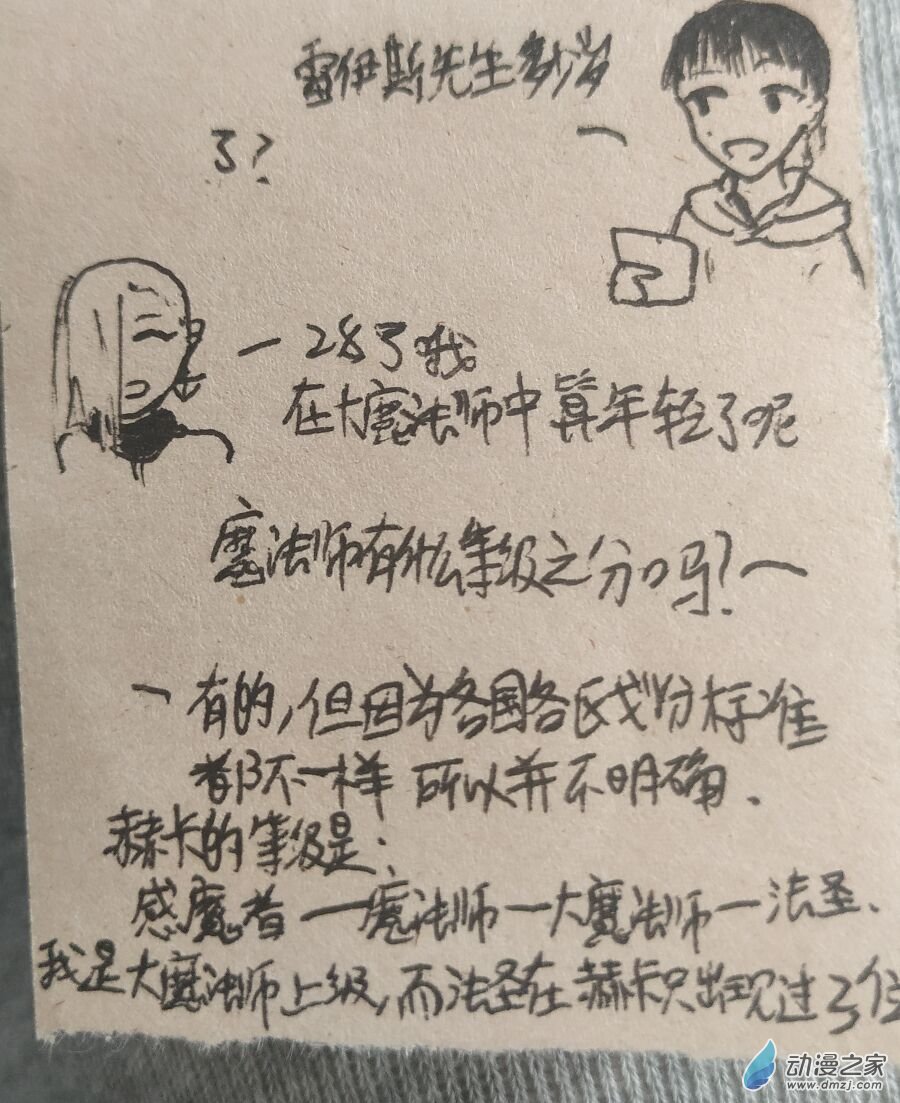 雷伊斯先生多少岁
了?
一28了哦
在大魔法师中算年轻了呢
魔法师有什么等级之分吗?一
一有的,但因为各国各区划分标准
都不一样 所以并不明确.
赫卡的等级是:
感魔者一魔法师一大魔法师一法圣.
我是大魔法师上级,而法圣在赫卡只出现过3位
动漫之家
www.dmzj.com